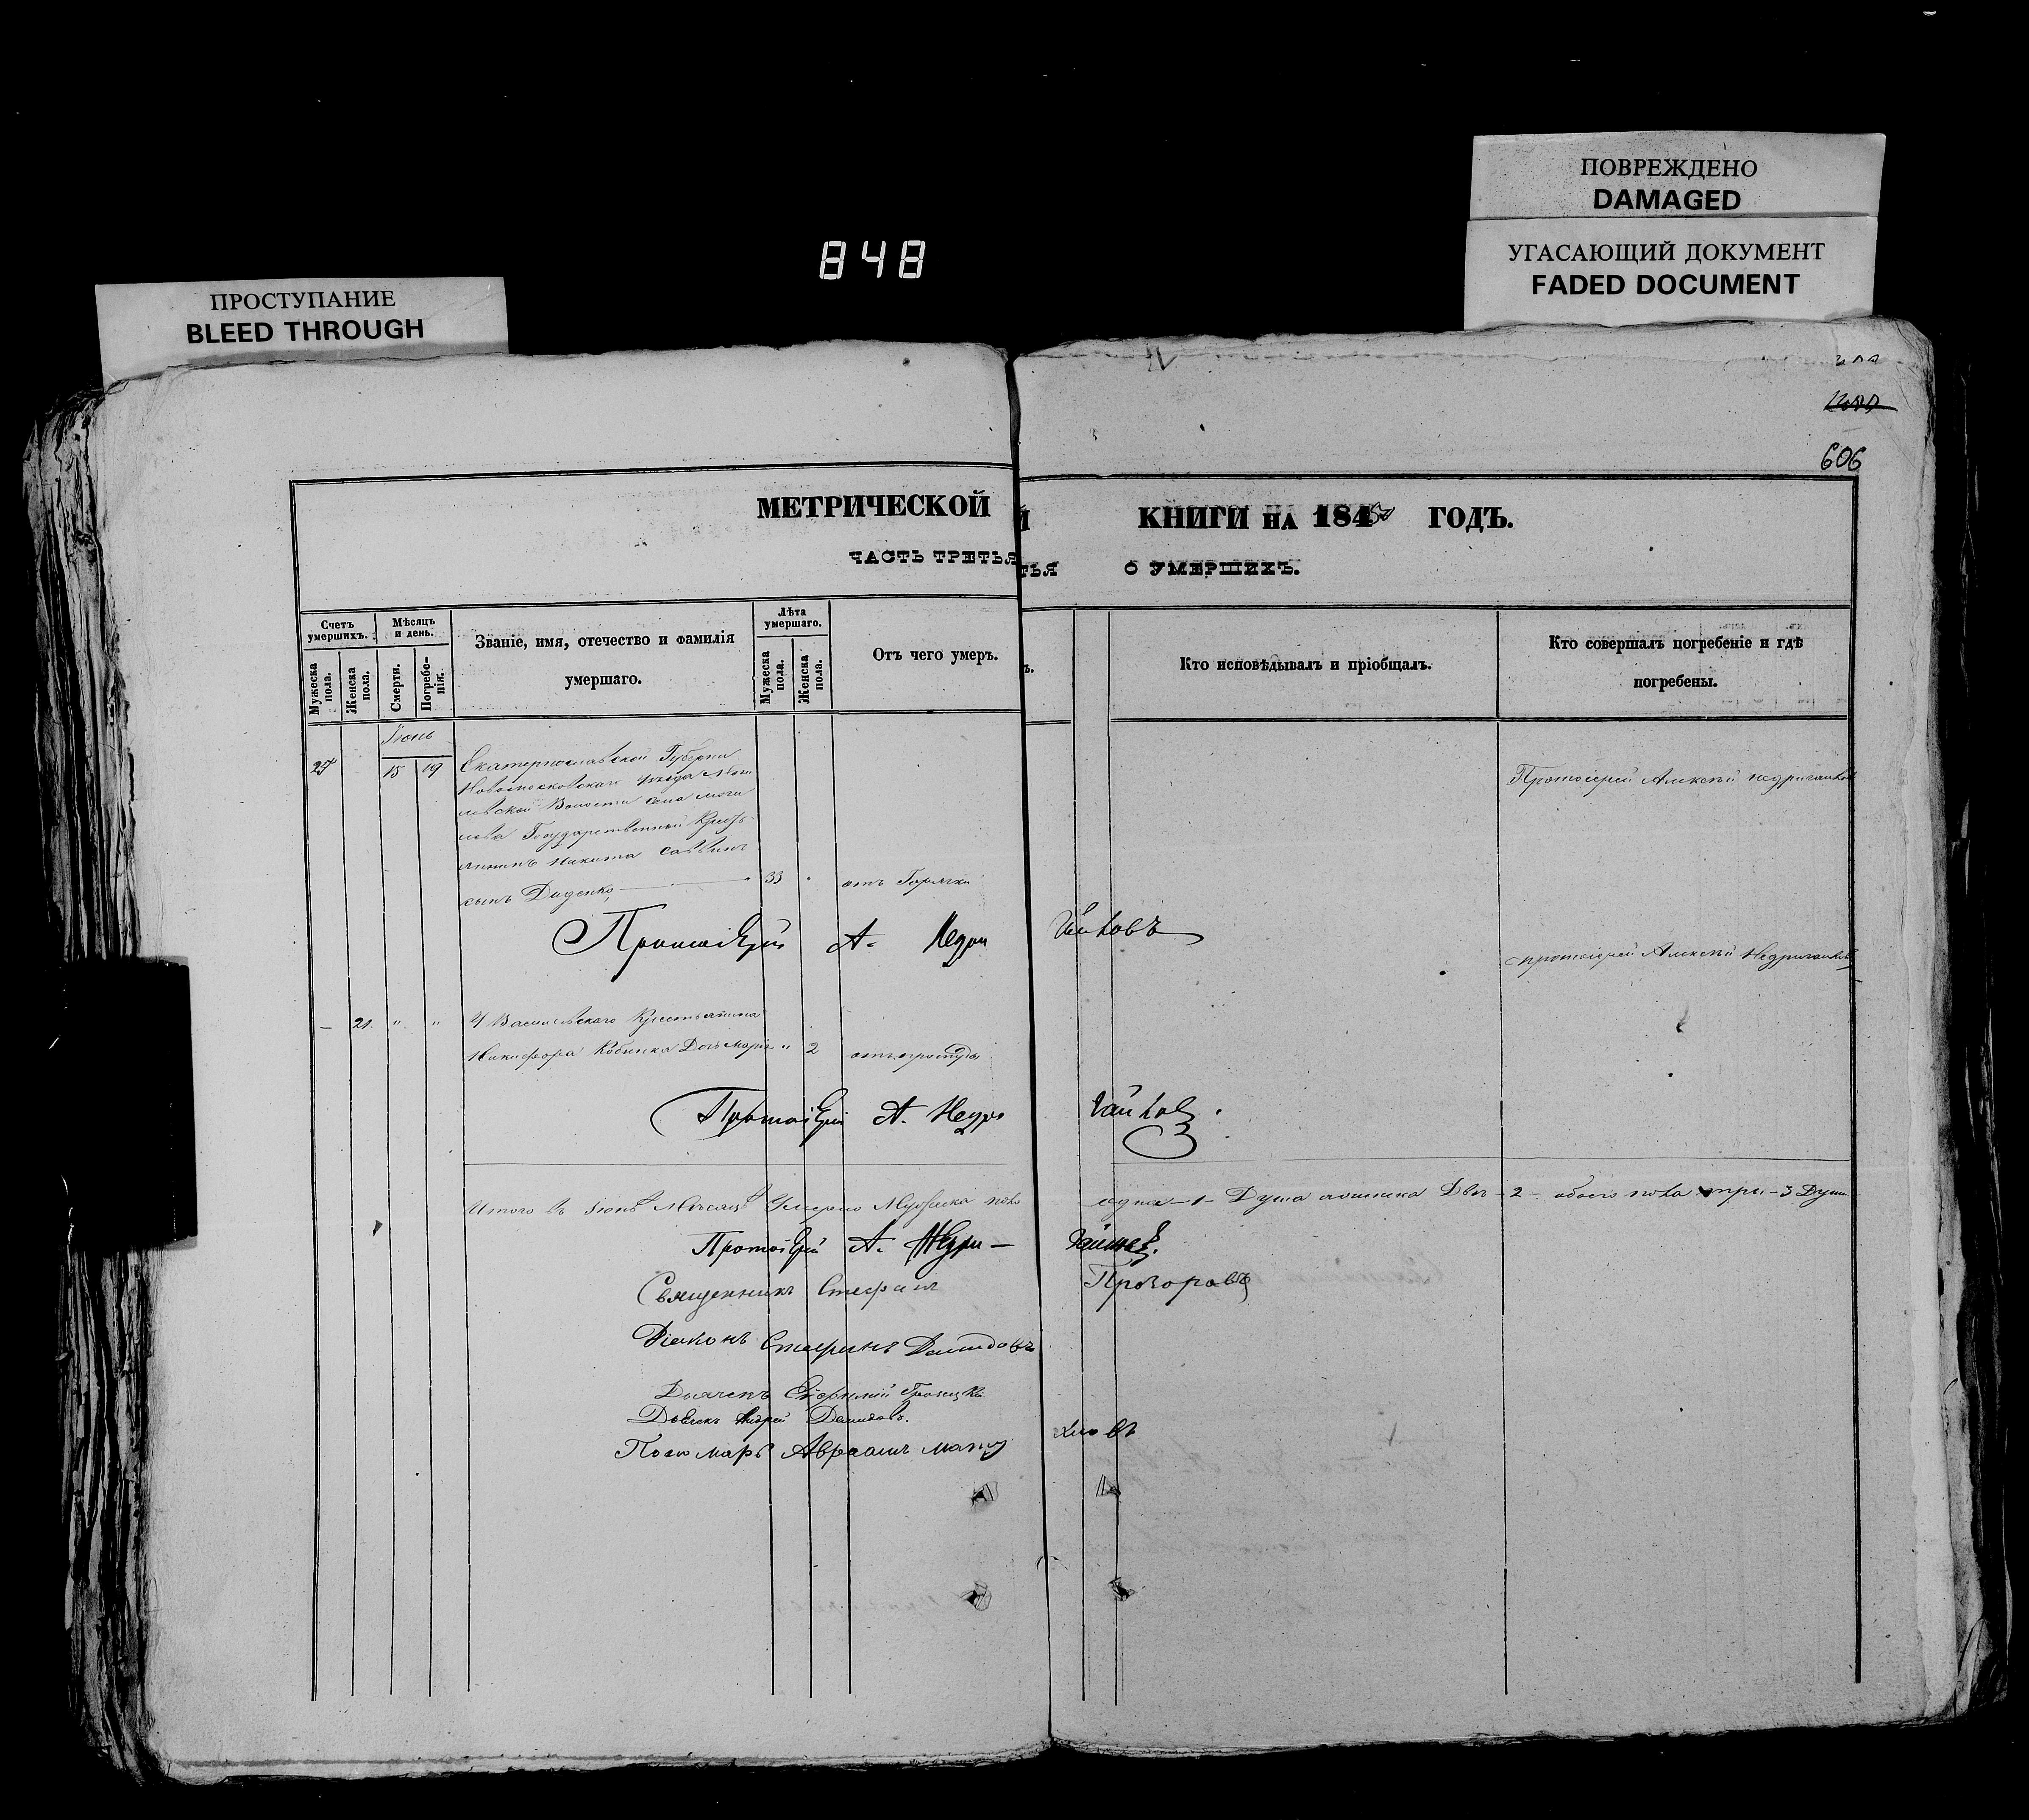 ПОВРЕЖДЕНО
DAMAGED
УГАСАЮЩИЙ ДОКУМЕНТ
FADED DOCUMENT
848
ПРОСТУПАНИЕ
BLEED THROUGH
606
МЕТРИЧЕСКОЙ
КНИГИ НА 184 ГОДЪ.
ЧАСТЬ ТРЕТЬЯ
О УМЕРШИХЪ.
Счетъ умершихъ.
Мѣсяцъ и день.
Званіе, имя, отечество и фамилія умершаго.
Лѣта умершаго.
Отъ чего умеръ.
Кто исповѣдывалъ и пріобщалъ.
Кто совершалъ погребеніе и гдѣ погребены.
Мужеска пола.
Женска пола.
Смерти.
Погребенія.
Мужеска пола.
Женска пола.
Іюнь
15 19 Екатеринославской Губерніи
Новомосковскаго уѣзда Моги
левской Волости села Моги
лева Государственный Кресть
янинъ Никита Саввинъ
сынъ Диденко 33 отъ Горячки
Протоіерей Алексѣй Недригайловъ
Протоіерей А. Недри гайловъ
21. " " Васильевскаго Крестьянина
Никифора Дочь Марія " 2 отъ простуды
Протоіерей Алексѣй Недригайловъ
Протоіерей А. Недри гайловъ
Итого въ Іюнѣ Мѣсяцѣ Умерло Мужеска пола одна - 1 - Душа женска Двѣ - 2 - обоего пола три - 3 Души
Протоіерей А. Недри - гайловъ.
Священникъ Стефанъ Прозоровъ
Діаконъ Стефанъ Демидовъ
Дьячекъ
Дьячекъ Андрей
Пономарь Авраамъ